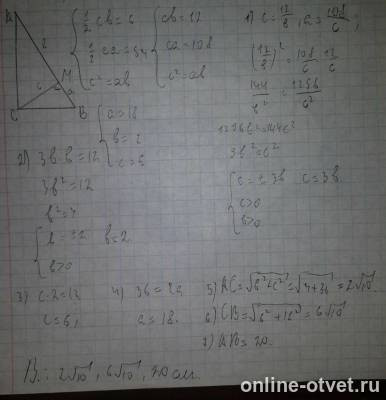 A
2
C
c
M
a
B
{ 1/2 cb = 6
1/2 ca = 54
c² = ab
{ cb = 12
ca = 108
c² = ab
{ a = 18
b = 2
c = 6
1) c = 12/b, a = 108/c ;
(12/b)² = 108/c · 12/c
144/b² = 1296/c²
1296b² = 144c²
9b² = c²
{ c = ± 3b c = 3b
c > 0
b > 0
2) 3b·b = 12
3b² = 12
b² = 4
{ b = ±2 b = 2
b > 0
3) c·2 = 12
c = 6,
4) 36 = 2a
a = 18.
5) AC = √b²+c² = √4+36 = 2√10
6) CB = √6²+18² = 6√10
7) AB = 20.
В.: 2√10, 6√10, 20 см.
online-otvet.ru